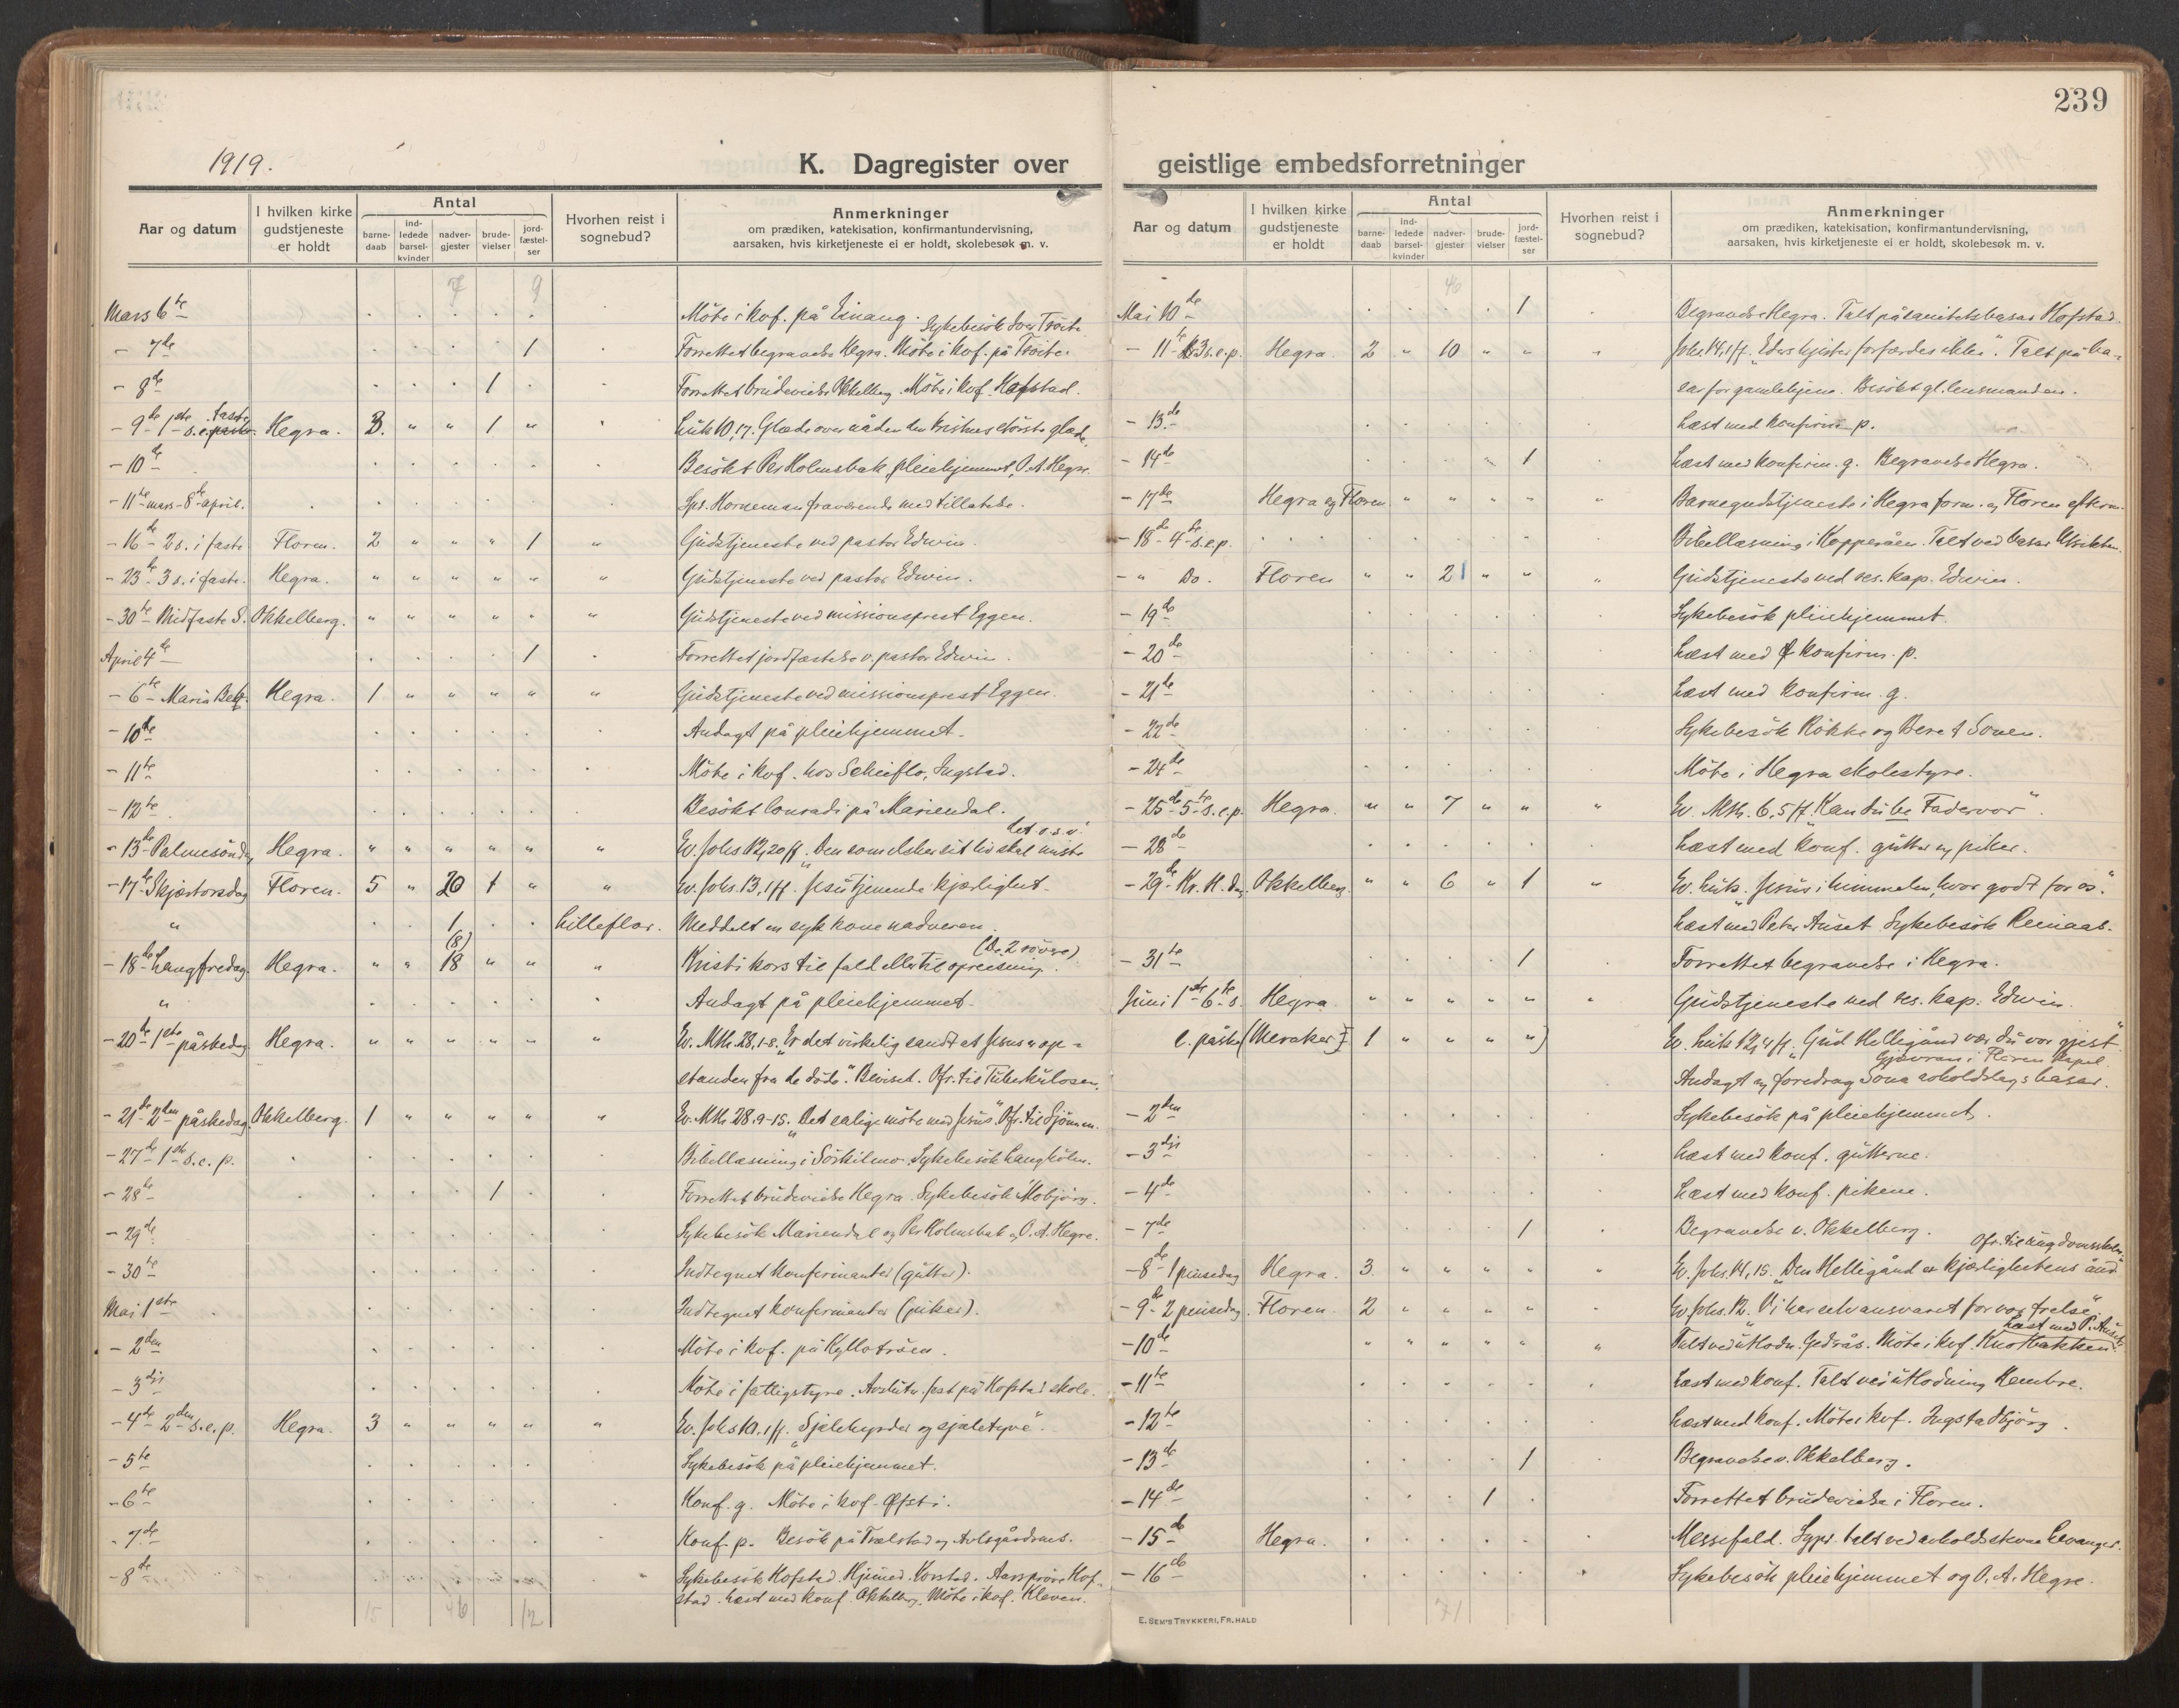 239
1919.
K. Dagregister over geistlige embedsforretninger
Aar og datum
I hvilken kirke gudstjeneste er holdt
Antal
barnedaab
indledede barselkvinder
nadvergjester
brudevielser
jordfæstelser
Hvorhen reist i sognebud?
Anmerkninger
om prædiken, katekisation, konfirmantundervisning,
aarsaken, hvis kirketjeneste ei er holdt, skolebesøk m. v.
7 9
Mars 6te Møte i kof. på Einang.
- 7de 1 Sykebesök Trøite
Forrettet begravelse Hegra. Møte i kof. på Trøite.
- 8de 1 Forrettet brudevielse Okkelberg. Møte i kof. Hofstad.
- 9de 1ste s. i faste Hegra. 3. " " 1 " " Luk 10,17. Glæde over nåden den kristnes største glæde.
- 10de Besökt Per Holmsbak, pleiehjemmet, O. A. Hegre.
- 11te mars - 8de april. Spr. Horneman fraværende med tillatelse.
- 16de 2 s. i faste Floren. 2 " " " 1 " Gudstjeneste ved pastor Edwin.
- 23de 3 s. i faste. Hegra. " " " " " " Gudstjeneste ved pastor Edwin.
- 30te Midfaste S. Okkelberg. " " " " " " Gudstjeneste ved missionsprest Eggen.
April 4de 1 Forrettet jordfæstelse v. pastor Edwin.
- 6te Mariæ Beb. Hegra. 1 " " " " " Gudstjeneste ved missionsprest Eggen.
- 10de Andagt på pleiehjemmet.
- 11te Møte i kof. hos Scheiflo, Ingstad.
- 12te Besökt Conradi på Mariendal.
- 13de Palmesöndag Hegra. " " " " " " Ev. Johs 12,20 ff. "Den som elsker sit liv skal miste det o.s.v."
- 17de Skjærtorsdag Floren. 5 " 20 1 " " Ev. Johs. 13, 1 ff. Jesu tjenende kjærlighet.
" 1 Lilleflor. Meddelt en syk kone nadveren.
- 18de Langfredag. Hegra. " " (8) 18 " " " Kristi kors til fald eller til opreisning. (De 2 røvere)
" Andagt på pleiehjemmet.
- 20de 1ste påskedag Hegra. " " " " " " Ev. Mth. 28,1-8. "Er det virkelig sandt at Jesus er op-
standen fra de døde." Bevised. Ofr. til Tuberkulosen.
- 21de 2den påskedag Okkelberg. 1 " " " " " Ev. Mth 28.9-15. "Det salige møte med Jesus." Ofr. til Sjömm.
- 27de 1ste s. e. p. Bibellæsning i Sörkilmo. Sykebesök Langhölm.
- 28de 1 Forrettet brudevielse Hegra. Sykebesök Mobjørg.
- 29de Sykebesök Mariendal og Per Holmsbak og O. A. Hegre.
- 30te Indtegnet konfirmanter (gutter).
Mai 1ste Indtegnet konfirmanter (piker).
- 2den Møte i kof. på Kyllotrøen.
- 3dje Møte i fattigstyre. Avslutn. fest på Hofstad skole.
- 4de 2den s. e. p. Hegra. 3 " " " " " Ev. Johs 10. 1 ff. "Sjælehyrder og sjæletyve".
- 5te Sykebesök på pleiehjemmet.
- 6te Konf. g. Møte i kof. Øfsti.
- 7de Konf. p. Besök på Trælstad og Avlsgårdsnes.
- 8de Sykebesök Hofstad. Hjemed. Korstad. Aarsprøve Hof-
stad. Læst med konf. Okkelberg. Møte i kof. Kleven.
15 46 12
Aar og datum
I hvilken kirke gudstjeneste er holdt
Antal
barnedaab
indledede barselkvinder
nadvergjester
brudevielser
jordfæstelser
Hvorhen reist i sognebud?
Anmerkninger
om prædiken, katekisation, konfirmantundervisning,
aarsaken, hvis kirketjeneste ei er holdt, skolebesøk m. v.
46
Mai 10de 1 Begravelse Hegra. Talt på sanitetsbasar Hofstad.
- 11te 3 s. e. p. Hegra. 2 " 10 " " " Johs. 14. 1 ff. "Eders hjerter forfærdes ikke." Talt på ba-
sar for gamlehjem. Besökt gl. lensmanden.
- 13de Læst med konfirm. p.
- 14de 1 Læst med konfirm. g. Begravelse Hegra.
- 17de Hegra og Floren " " " " " Barnegudstjeneste i Hegra form. og Floren efterm.
- 18de 4de s. e. p. Bibellæsning i Kopperåen. Talt ved basar
- " Do. Floren " " 21 " " " Gudstjeneste ved res. kap. Edwin.
- 19de Sykebesök pleiehjemmet.
- 20de Læst med konfirm. p.
- 21de Læst med konfirm. g.
- 22de Sykebesök Rökke og Beret Sonen.
- 24de Møte i Hegra skolestyre.
- 25de 5te s. e. p. Hegra. " " 7 " " " Ev. Mth. 6, 5 ff. "Kan du be Fadervor".
- 28de Læst med konf. gutter og piker.
- 29de Kr. H. dag Okkelberg. " " 6 " 1 " Ev. Luk. "Jesus i himmelen, hvor godt for os."
Læst med Peter Auset. Sykebesök Reinaas.
- 31te 1 Forrettet begravelse i Hegra.
Juni 1ste 6te s. Hegra. " " " " " " Gudstjeneste ved res. kap. Edwin.
e. påske (Meraker) 1 " " " ") Ev. Luk 12, 4 ff. "Gud Helligånd vær du vor gjest."
Gjøvran i Floren kapel.
Andagt og foredrag Sona avholdslags basar.
- 2den Sykebesök på pleiehjemmet.
- 3dje Læst med konf. gutterne.
- 4de Læst med konf. pikene.
- 7de 1 Begravelse v. Okkelberg.
- 8de 1 pinsedag Hegra. 3. " " " " " Ofr. til ungdomsskolen.
Ev. Johs. 14, 15. "Den Helligånd er kjærlighetens ånd"
- 9de 2 pinsedag. Floren. 2 " " " " Ev Johs. 12. "Vi har selv ansvaret for vor frelse"
- 10de " " " " " " Læst med P. Auset.
Talt ved utlodn. Gedrås. Møte i kof. Knotbakken.
- 11te Læst med konf. Talt ved utlodning Hembre.
- 12te Læst med konf. Møte i kof. Ingstadbjörg.
- 13de 1 Begravelse v. Okkelberg.
- 14de 1 Forrettet brudevielse i Floren.
- 15de Hegra. Messefald. Spr. talt ved avholdsstevne Levanger.
- 16de Sykebesök pleiehjemmet og O. A. Hegre.
71
E. SEM'S TRYKKERI, FR. HALD